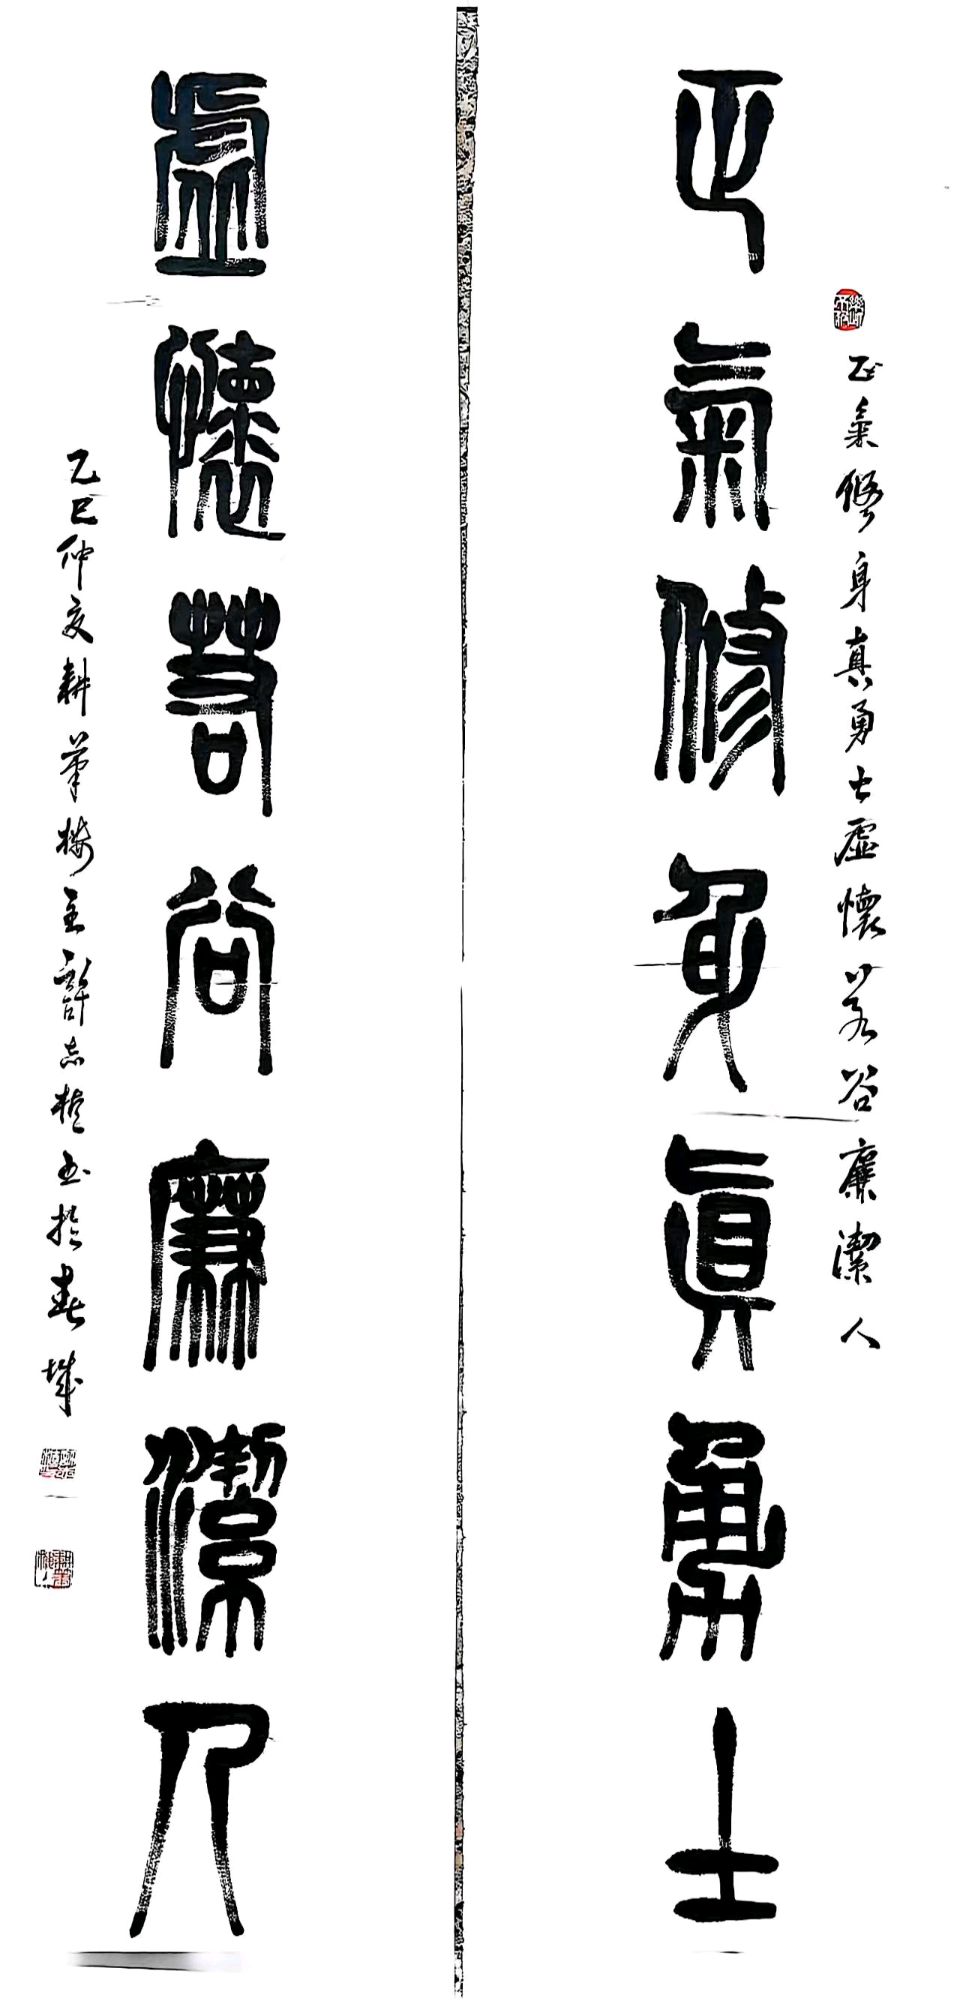 正氣修身真勇士虛懷若谷廉潔人
正氣修身真勇士
虛懷若谷廉潔人
乙巳仲夏耕筆樓主許志植書於春城